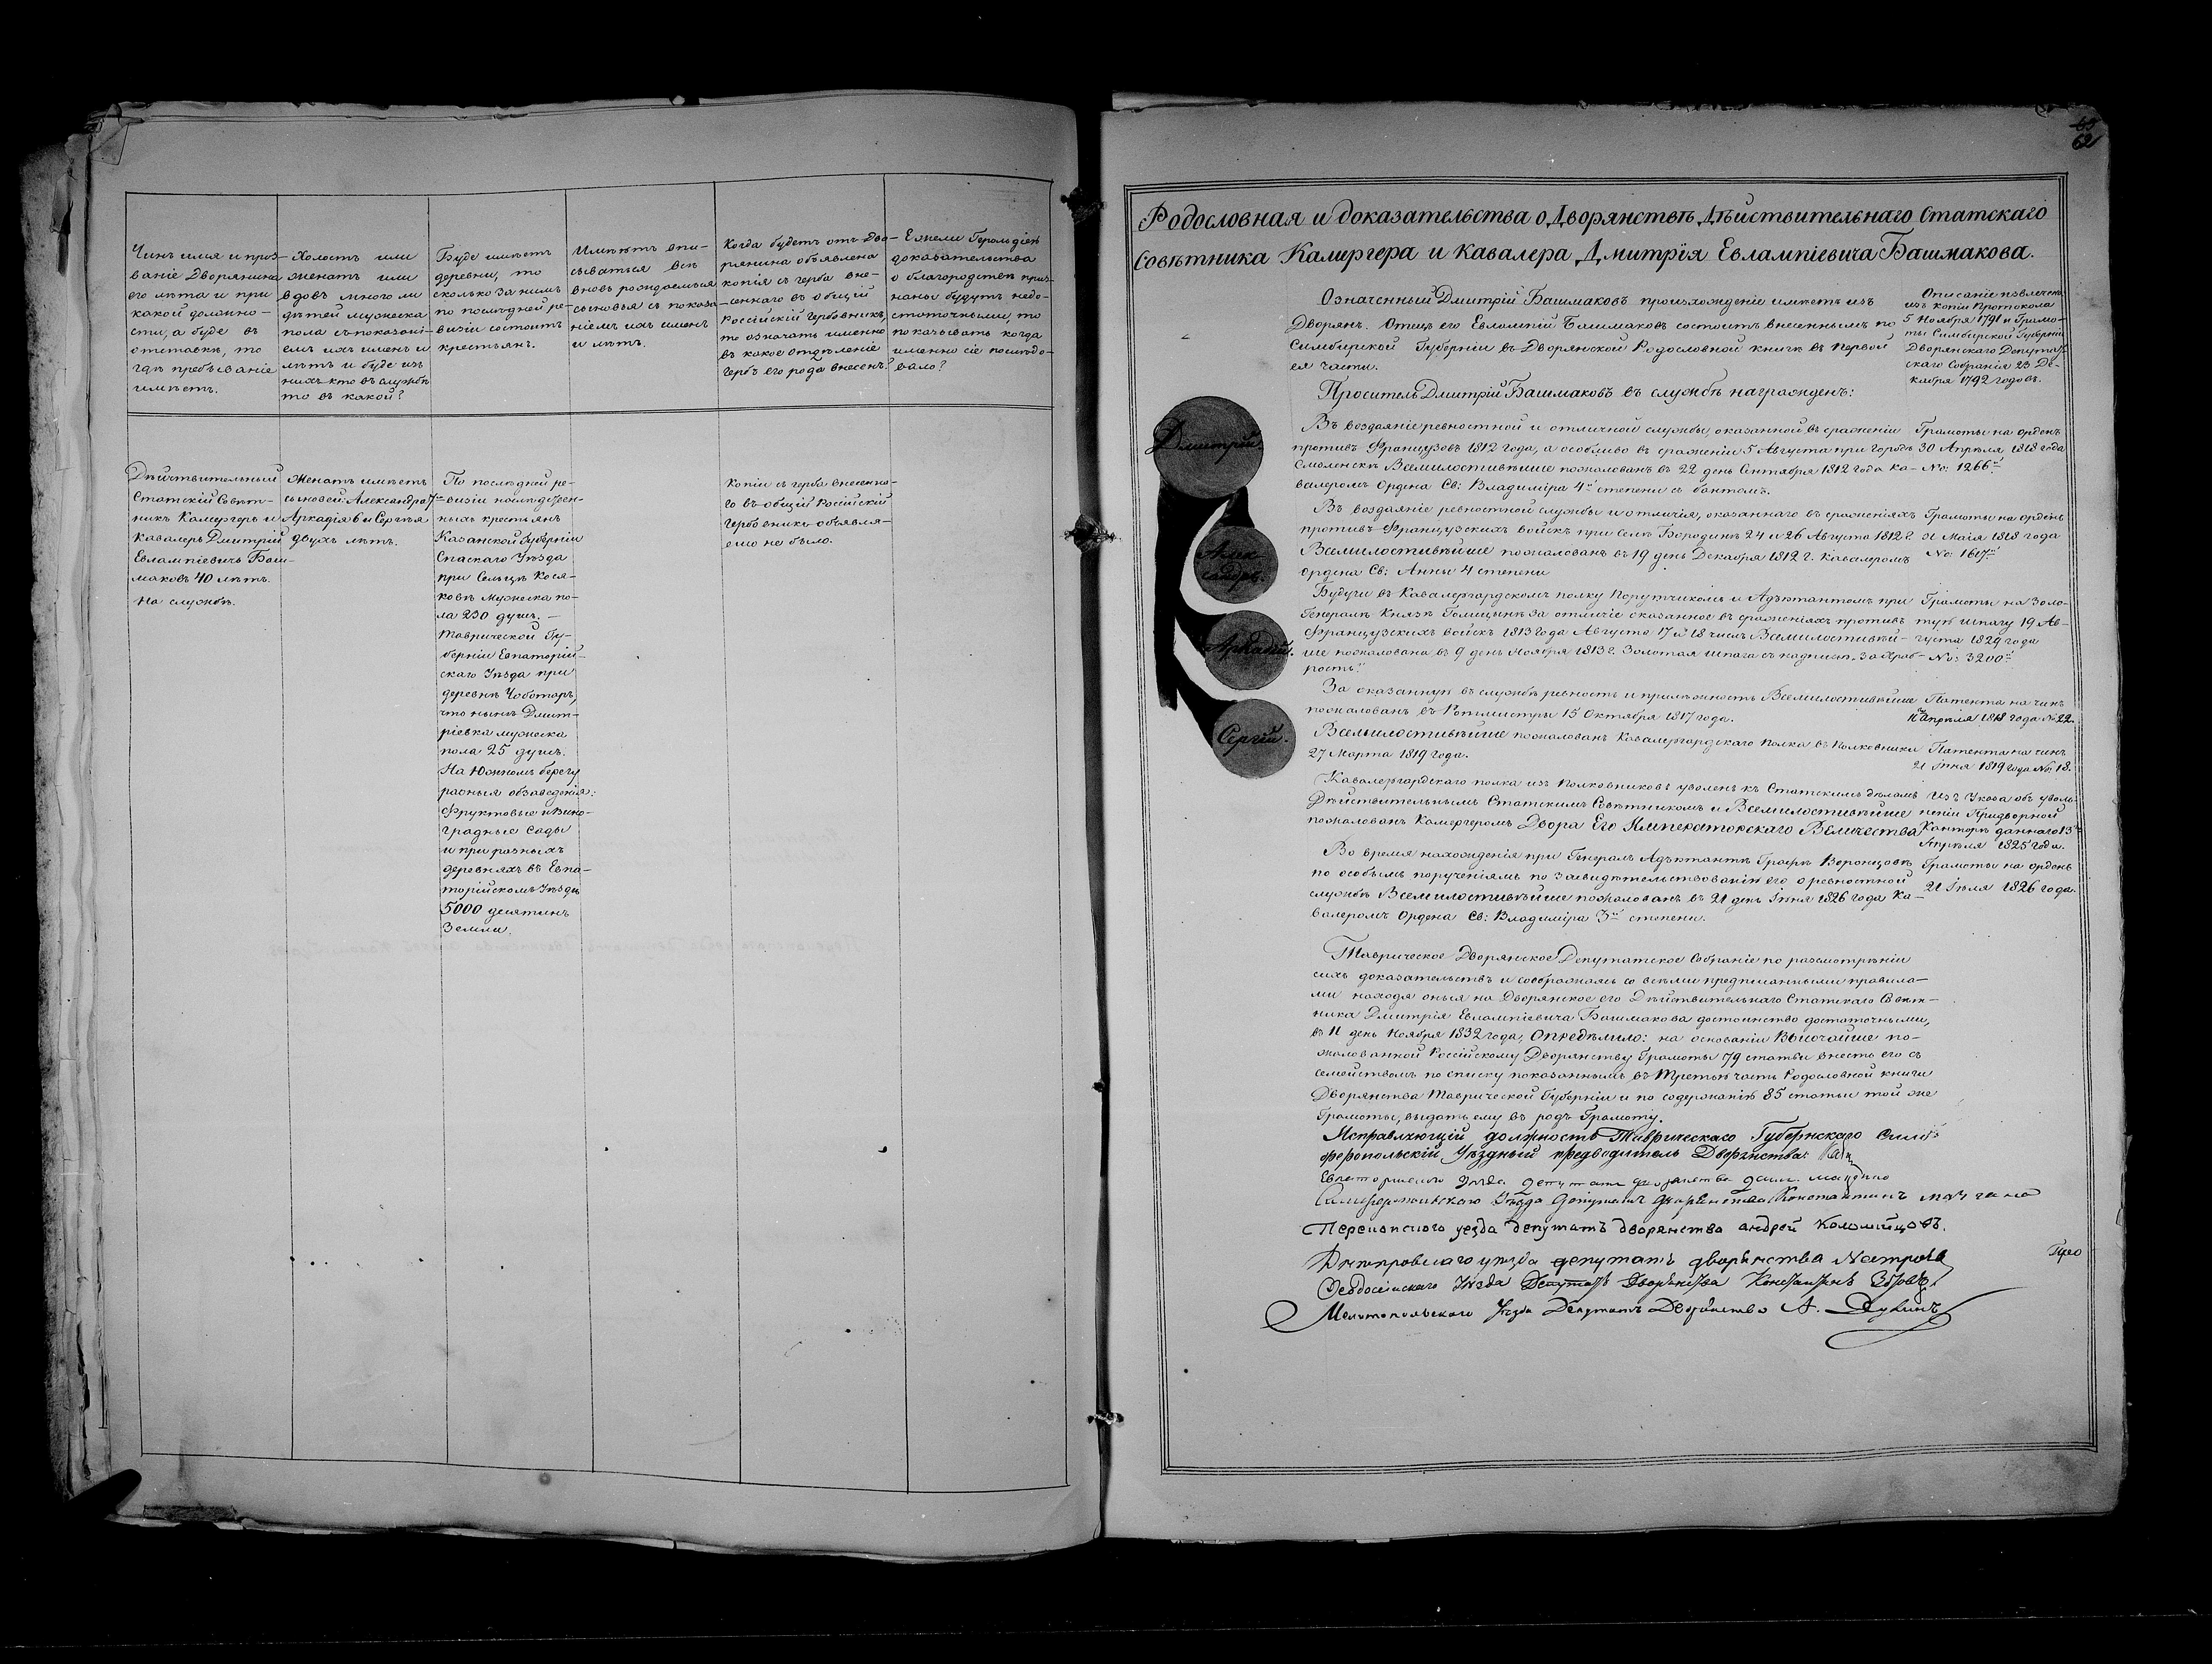 Чинъ имя и проз-
ваніе Дворянина
его лѣта и при
какой должно-
сти, а буде въ
отставкѣ, то
гдѣ пребываніе
имѣетъ.
Холостъ или
женатъ или
вдовъ много ли
дѣтей мужеска
пола съ показані-
емъ ихъ именъ и
лѣтъ и буде изъ
нихъ кто въ службѣ
то въ какой?
Буде имѣетъ
деревни, то
сколько за нимъ
по послѣдней ре-
визіи состоитъ
крестьянъ.
Имѣетъ впи-
сываться всѣ
вновь рождаемыя
сыновья съ показа-
ніемъ ихъ именъ
и лѣтъ.
Когда будетъ отъ Дво-
рянина объявлена
копія съ герба вне-
сеннаго въ общій
Россійскій Гербовникъ,
то означать именно
въ какое отдѣленіе
гербъ его рода внесенъ?
Ежели Герольдіею
доказательства
о благородствѣ приз-
наны будутъ недо-
статочными то
показывать когда
именно сіе послѣдо-
вало?
Дѣйствительный
Статскій Совѣт-
никъ Камергеръ и
Кавалеръ Дмитрій
Евлампіевичь Баш-
маковъ 40 лѣтъ.
На службѣ.
Женатъ имѣетъ
сыновей: Александра 7
Аркадія 6 и Сергѣя
двухъ лѣтъ.
По послѣдней ре-
визіи наслѣдствен-
ныхъ крестьянъ
Казанской Губерніи
Спаскаго Уѣзда
при Сельцѣ Кося-
ковѣ мужеска по-
ла 230 душъ. —
Таврической Гу-
берніи Евпаторій-
скаго Уѣзда при
деревнѣ Чоботаръ,
что нынѣ Дмит-
ріевка мужеска
пола 25 душъ.
На Южномъ берегу
разныя обзаведенія:
Фруктовые и Вино-
градные Сады
и при разныхъ
деревняхъ въ Евпа-
торійскомъ Уѣздѣ
5000 десятинъ
Земли.
Копіи съ герба внесенна-
го въ общій Россійскій
Гербовникъ объявля-
емо не было.
62
Родословная и доказательства о Дворянствѣ Дѣйствительнаго Статскаго
Совѣтника Камергера и Кавалера Дмитрія Евлампіевича Башмакова.
Означенный Дмитрій Башмаковъ произхожденіе имѣетъ изъ
Дворянъ. Отецъ его Евлампій Башмаковъ состоитъ внесеннымъ по
Симбирской Губерніи въ Дворянской Родословной книгѣ въ первой
ея части.
Описаніе извлечен
изъ копіи Протокола
5 Ноября 1791 и Грамо-
ты Симбирской Губерніи
Дворянскаго Депутат-
скаго Собранія 23 Де-
кабря 1792 годовъ.
Проситель Дмитрій Башмаковъ въ службѣ награжденъ:
Дмитрій.
Алек
сандръ.
Аркадій.
Сергій.
Въ воздаяніе ревностной и отличной службы оказанной въ сраженіи
противъ Французовъ 1812 года, а особливо въ сраженіи 5 Августа при городѣ
Смоленскѣ Всемилостивѣйше пожалованъ въ 22 день Сентября 1812 года Ка-
валеромъ Ордена Св: Владиміра 4й степени съ бантомъ.
Грамоты на орденъ
30 Апрѣля 1818 года
No: 1266й
Въ воздаяніе ревностной службы и отличія, оказаннаго въ сраженіяхъ
противъ Французскихъ войскъ при селѣ Бородинѣ 24 и 26 Августа 1812 г.
Всемилостивѣйше пожалованъ въ 19 день Декабря 1812 г. Кавалеромъ
Ордена Св: Анны 4 степени
Грамоты на орденъ
Маія 1818 года
No: 1617й
Будучи въ Кавалергардскомъ полку Порутчикомъ и Адъютантомъ при
Генералѣ Князѣ Голицынѣ за отличіе оказанное въ сраженіяхъ противъ
Французскихъ войскъ 1813 года Августа 17 и 18 числъ Всемилостивѣй-
ше пожалована въ 9 день Ноября 1813 г. Золотая шпага съ надписью „За Храб-
рость"
Грамоты на Золо-
тую шпагу 19 Ав-
густа 1829 года
No: 3200й
За оказанную въ службѣ ревность и прилѣжность Всемилостивѣйше
пожалованъ въ Ротмистры 15 Октября 1817 года.
Патента на чинъ
Апрѣля 1818 года No 22.
Всемилостивѣйше пожалованъ Кавалергардскаго Полка въ Полковники
27 Марта 1819 года.
Патента на чинъ
21 Іюня 1819 года No 18.
Кавалергардскаго полка изъ Полковниковъ уволенъ къ Статскимъ дѣламъ
Дѣйствительнымъ Статскимъ Совѣтникомъ и Всемилостивѣйше
пожалованъ Камергеромъ Двора Его Императорскаго Величества
Изъ Указа объ уволь-
неніи Придворной
Конторы даннаго 13
Апрѣля 1825 года.
Во время нахожденія при Генералъ Адъютантѣ Графѣ Воронцовѣ
по особымъ порученіямъ по засвидѣтельствованію его о ревностной
службѣ Всемилостивѣйше пожалованъ въ 21 день Іюня 1826 года Ка-
валеромъ Ордена Св: Владиміра 3й степени.
Грамоты на орденъ
21 Іюля 1826 года.
Таврическое Дворянское Депутатское Собраніе по разсмотрѣніи
сихъ доказательствъ и сообразжаясь со всѣми предписанными правила-
ми находя оныя на Дворянское его Дѣйствительнаго Статскаго Совѣт-
ника Дмитрія Евлампіевича Башмакова достоинство достаточными,
въ 11 день Ноября 1832 года, Опредѣлило: на основаніи Высочайше по-
жалованной Россійскому Дворянству Грамоты 79 статьи внесть его съ
семействомъ по списку показаннымъ въ Третью часть Родословной книги
Дворянства Таврической Губерніи и по содержанію 85 статьи той же
Грамоты, выдать ему въ родъ Грамоту.
Исправляющій должность Таврическаго Губернскаго Симѳ
феропольскій Уѣздный предводитель Дворянства
Евпаторіскаго уѣзда депутатъ дворянства
Симферопольскаго Уѣзда Депутатъ Дворянства Константинъ Мавгана
Перекопскаго уезда депутатъ дворянства андрей Коломійцовъ.
Днѣпровскаго уѣзда депутатъ дворянства
Ѳеодосійскаго Уѣзда Депутатъ Дворянства Константинъ
Мелитопольскаго Уѣзда Депутатъ Дворянства А.